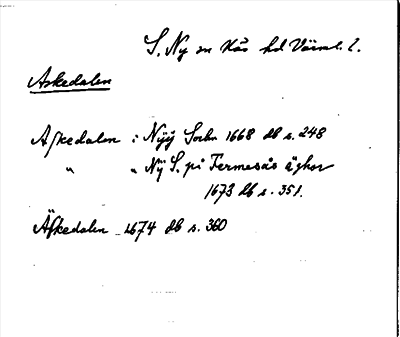 S. Ny sn Näs hd Värml. l.
Askedalen
Askedalen : Nÿÿ Sochn 1668 db s. 248
" " Nÿ S. på Fermesås äghor
1673 db s. 351.
Äskedalen 1674 db s. 360